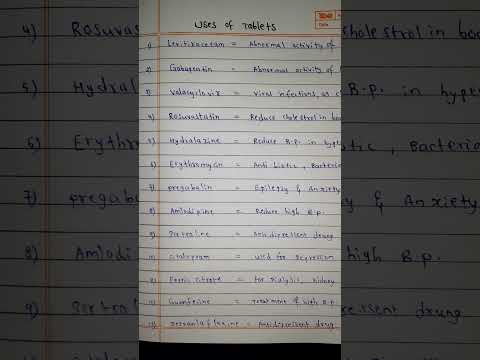 Uses of Tablets
1) Levitiracetam = Abnormal activity of
2) Gabapentin = Abnormal activity of
3) Valacyclovir = Viral infections, as c
4) Rosuvastatin = Reduce cholestrol in bo
5) Hydralazine = Reduce B.P. in hype
6) Erythromycin = Anti biotic, Bacteria
7) pregabalin = Epilepsy & Anxiety
8) Amlodipine = Reduce high B.P.
9) Sertraline = Anti dipressent drung
10) citalopram = used for depression
11) Ferric citrate = for dialysis, kidney
12) Guanfacine = Treatment of high B.P.
13) Desvanlafaxine = Antidipressent drug
4) Rosuvas
5) Hydral
6) Eryth
7) prega
8) Amlodi
9) Sert
holestrol in bo
B.P. in hype
tic, Bacteria
& Anxiety
high B.P.
ressent drung